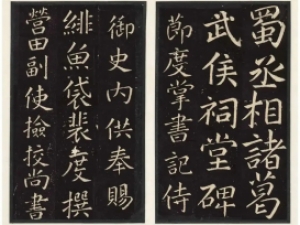 蜀丞相諸葛
武侯祠堂碑
節度掌書記侍
御史内供奉賜
緋魚袋裴度撰
營田副使撿挍尚書